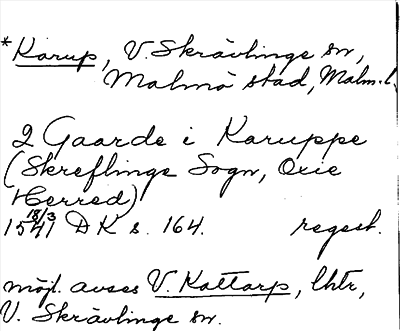 *Karup, V. Skrävlinge sn,
Malmö stad, Malm. l.
2 Gaarde i Karuppe
(Skreflinge Sogn, Oxie
Herred)
18/3
1541 DK s. 164. regest.
möjl. avses V. Kattarp, lhtr,
V. Skrävlinge sn.